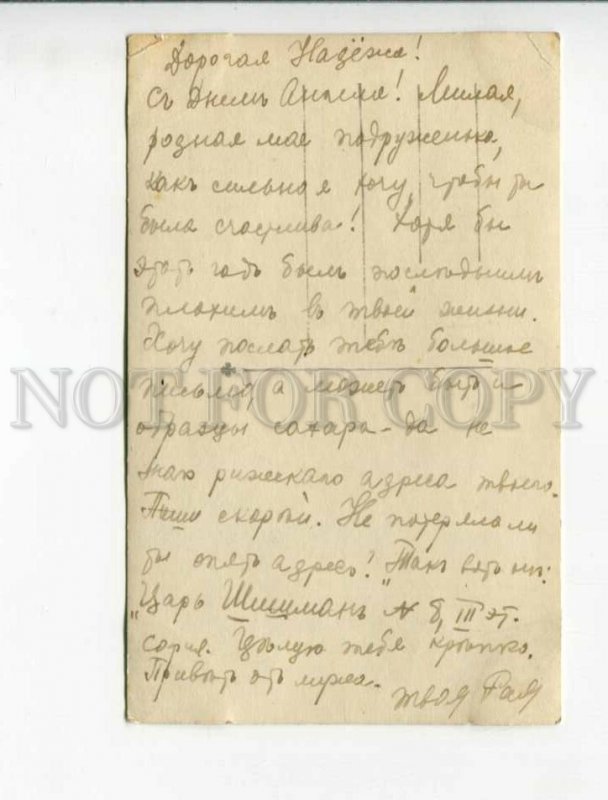 Дорогая Надёжа!
Съ Днемъ Ангела! Милая,
родная моя подруженька,
какъ сильно я хочу, чтобы ты
была счастлива! Хотя бы
этотъ годъ былъ послѣднимъ
плохимъ въ твоей жизни.
Хочу послать тебѣ большое
письмо, а можетъ быть и
образцы сахара - да не
знаю рижскаго адреса твоего.
Пиши скорѣй. Не потеряла ли
ты опять адресъ? Такъ вотъ онъ:
"Царь Шишманъ № 8, III эт.
София. Цѣлую тебя крѣпко.
Привѣтъ отъ мужа.
твоя Рая
NOT FOR COPY